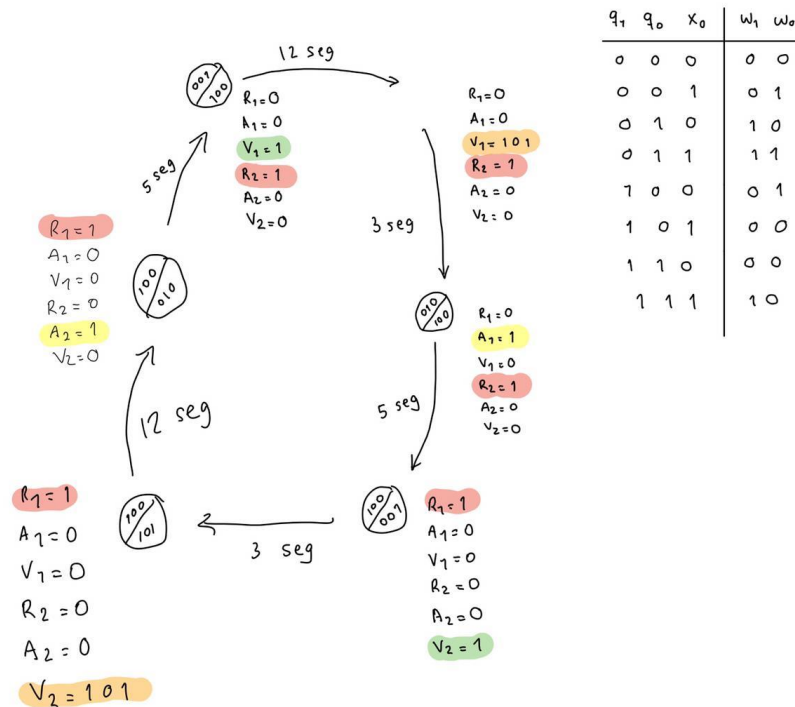 12 seg
001
100
R1=0
A1=0
V1=1
R2=1
A2=0
V2=0
R1=0
A1=0
V1=101
R2=1
A2=0
V2=0
3 seg
010
100
R1=0
A1=1
V1=0
R2=1
A2=0
V2=0
5 seg
100
001
R1=1
A1=0
V1=0
R2=0
A2=0
V2=1
3 seg
100
101
R1=1
A1=0
V1=0
R2=0
A2=0
V2=101
12 seg
100
010
R1=1
A1=0
V1=0
R2=0
A2=1
V2=0
5 seg
q1 q0 x0 w1 w0
0 0 0 0 0
0 0 1 0 1
0 1 0 1 0
0 1 1 1 1
1 0 0 0 1
1 0 1 0 0
1 1 0 0 0
1 1 1 1 0